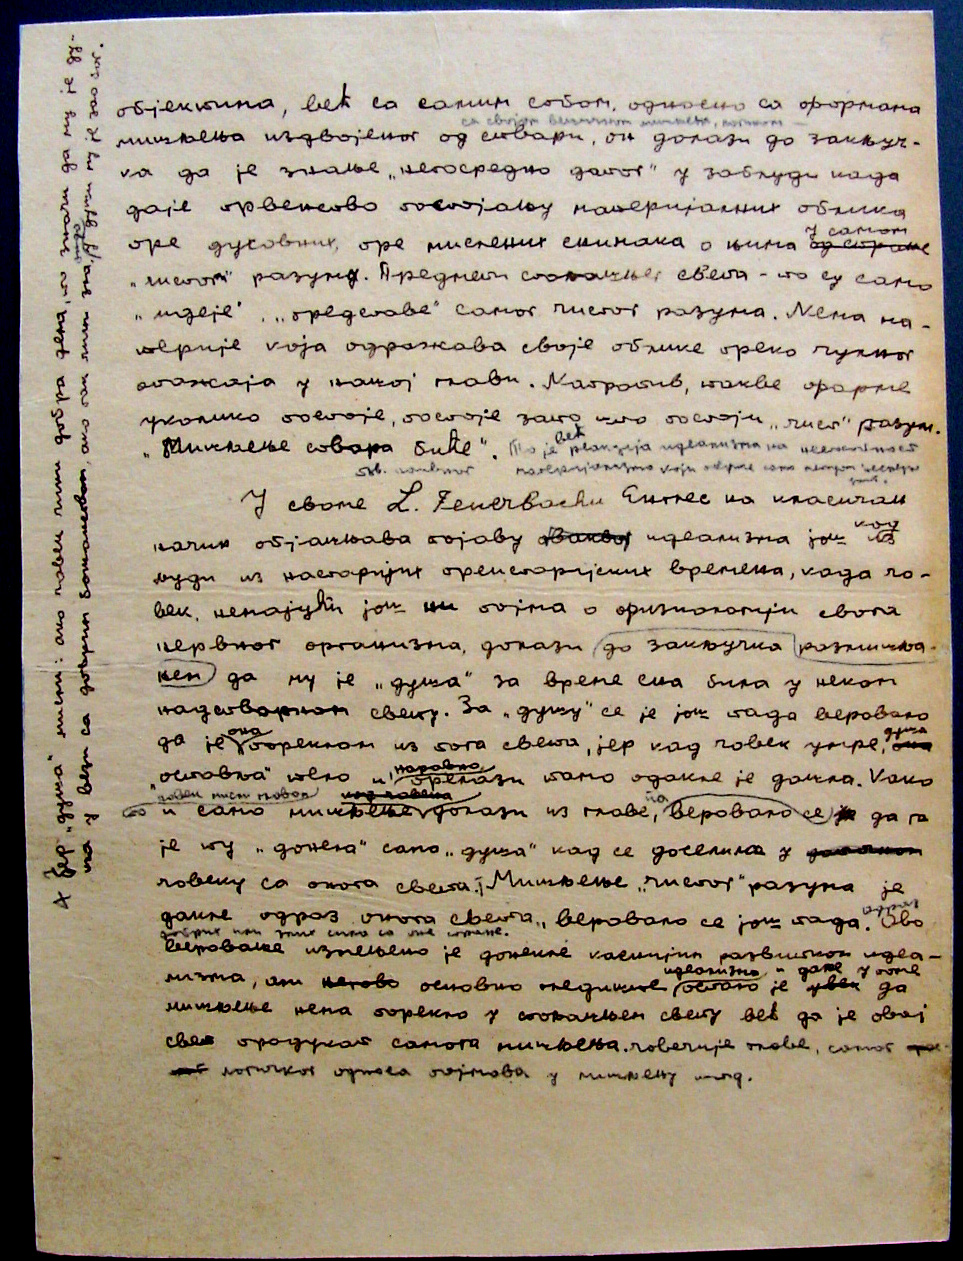 објектима, већ са самим собом, односно са формама
са својом
мишљења издвојеног од ствари, он долази до закључ-
ка да је знање „непосредно дато" у заблуди када
даје првенство постојању материјалних облика
пре духовних, пре мислених снимака о њима у самом од стране
„чистом" разуму. Предмети спољашњег света - то су само
„идеје", „представе" самог чистог разума. Нема ма-
терије која одражава своје облике преко чулног
опажаја у нашој глави. Напротив, такве форме
уколико постоје, постоје зато што постоји „чист" разум.
„Мишљење ствара биће". То је већ реакција идеализма на
тзв. материјализма који
У своме L. Feuerbachu Енгелс на класичан
начин објашњава појаву оваквог идеализма још код из
људи из најстаријих преисторијских времена, када чо-
век, немајући још ни појма о физиологији свога
нервног организма, долази до закључка размишља-
њем да му је „душа" за време сна била у неком
надстварном свету. За „душу" се је још тада веровало
да је она пореклом из тога света, јер кад човек умре, душа она
„оставља" тело и наравно прелази тамо одакле је дошла. Како
човеку
и само мишљење долази из главе, па веровало се је да га
је ту „донела" само „душа" кад се доселила у
човеку са онога света. Мишљење „чистог" разума је
дакле одраз онога света, веровало се још тада. Ово
добрих или злих сила са оне стране.
веровање измењено је донекле каснијим развитком идеа-
лизма, али његово основно гледиште идеализма и даље у томе остало је увек да
мишљење нема порекло у спољашњем свету већ да је овај
свет продукат самога мишљења човечије главе, самог
логичког односа појмова у мишљењу итд.
х Јер „душа" мисли: ако човек чини добра дела, то значи да му је ду-
ша у вези са добрим божанством, ако пак чини зла, онда је му